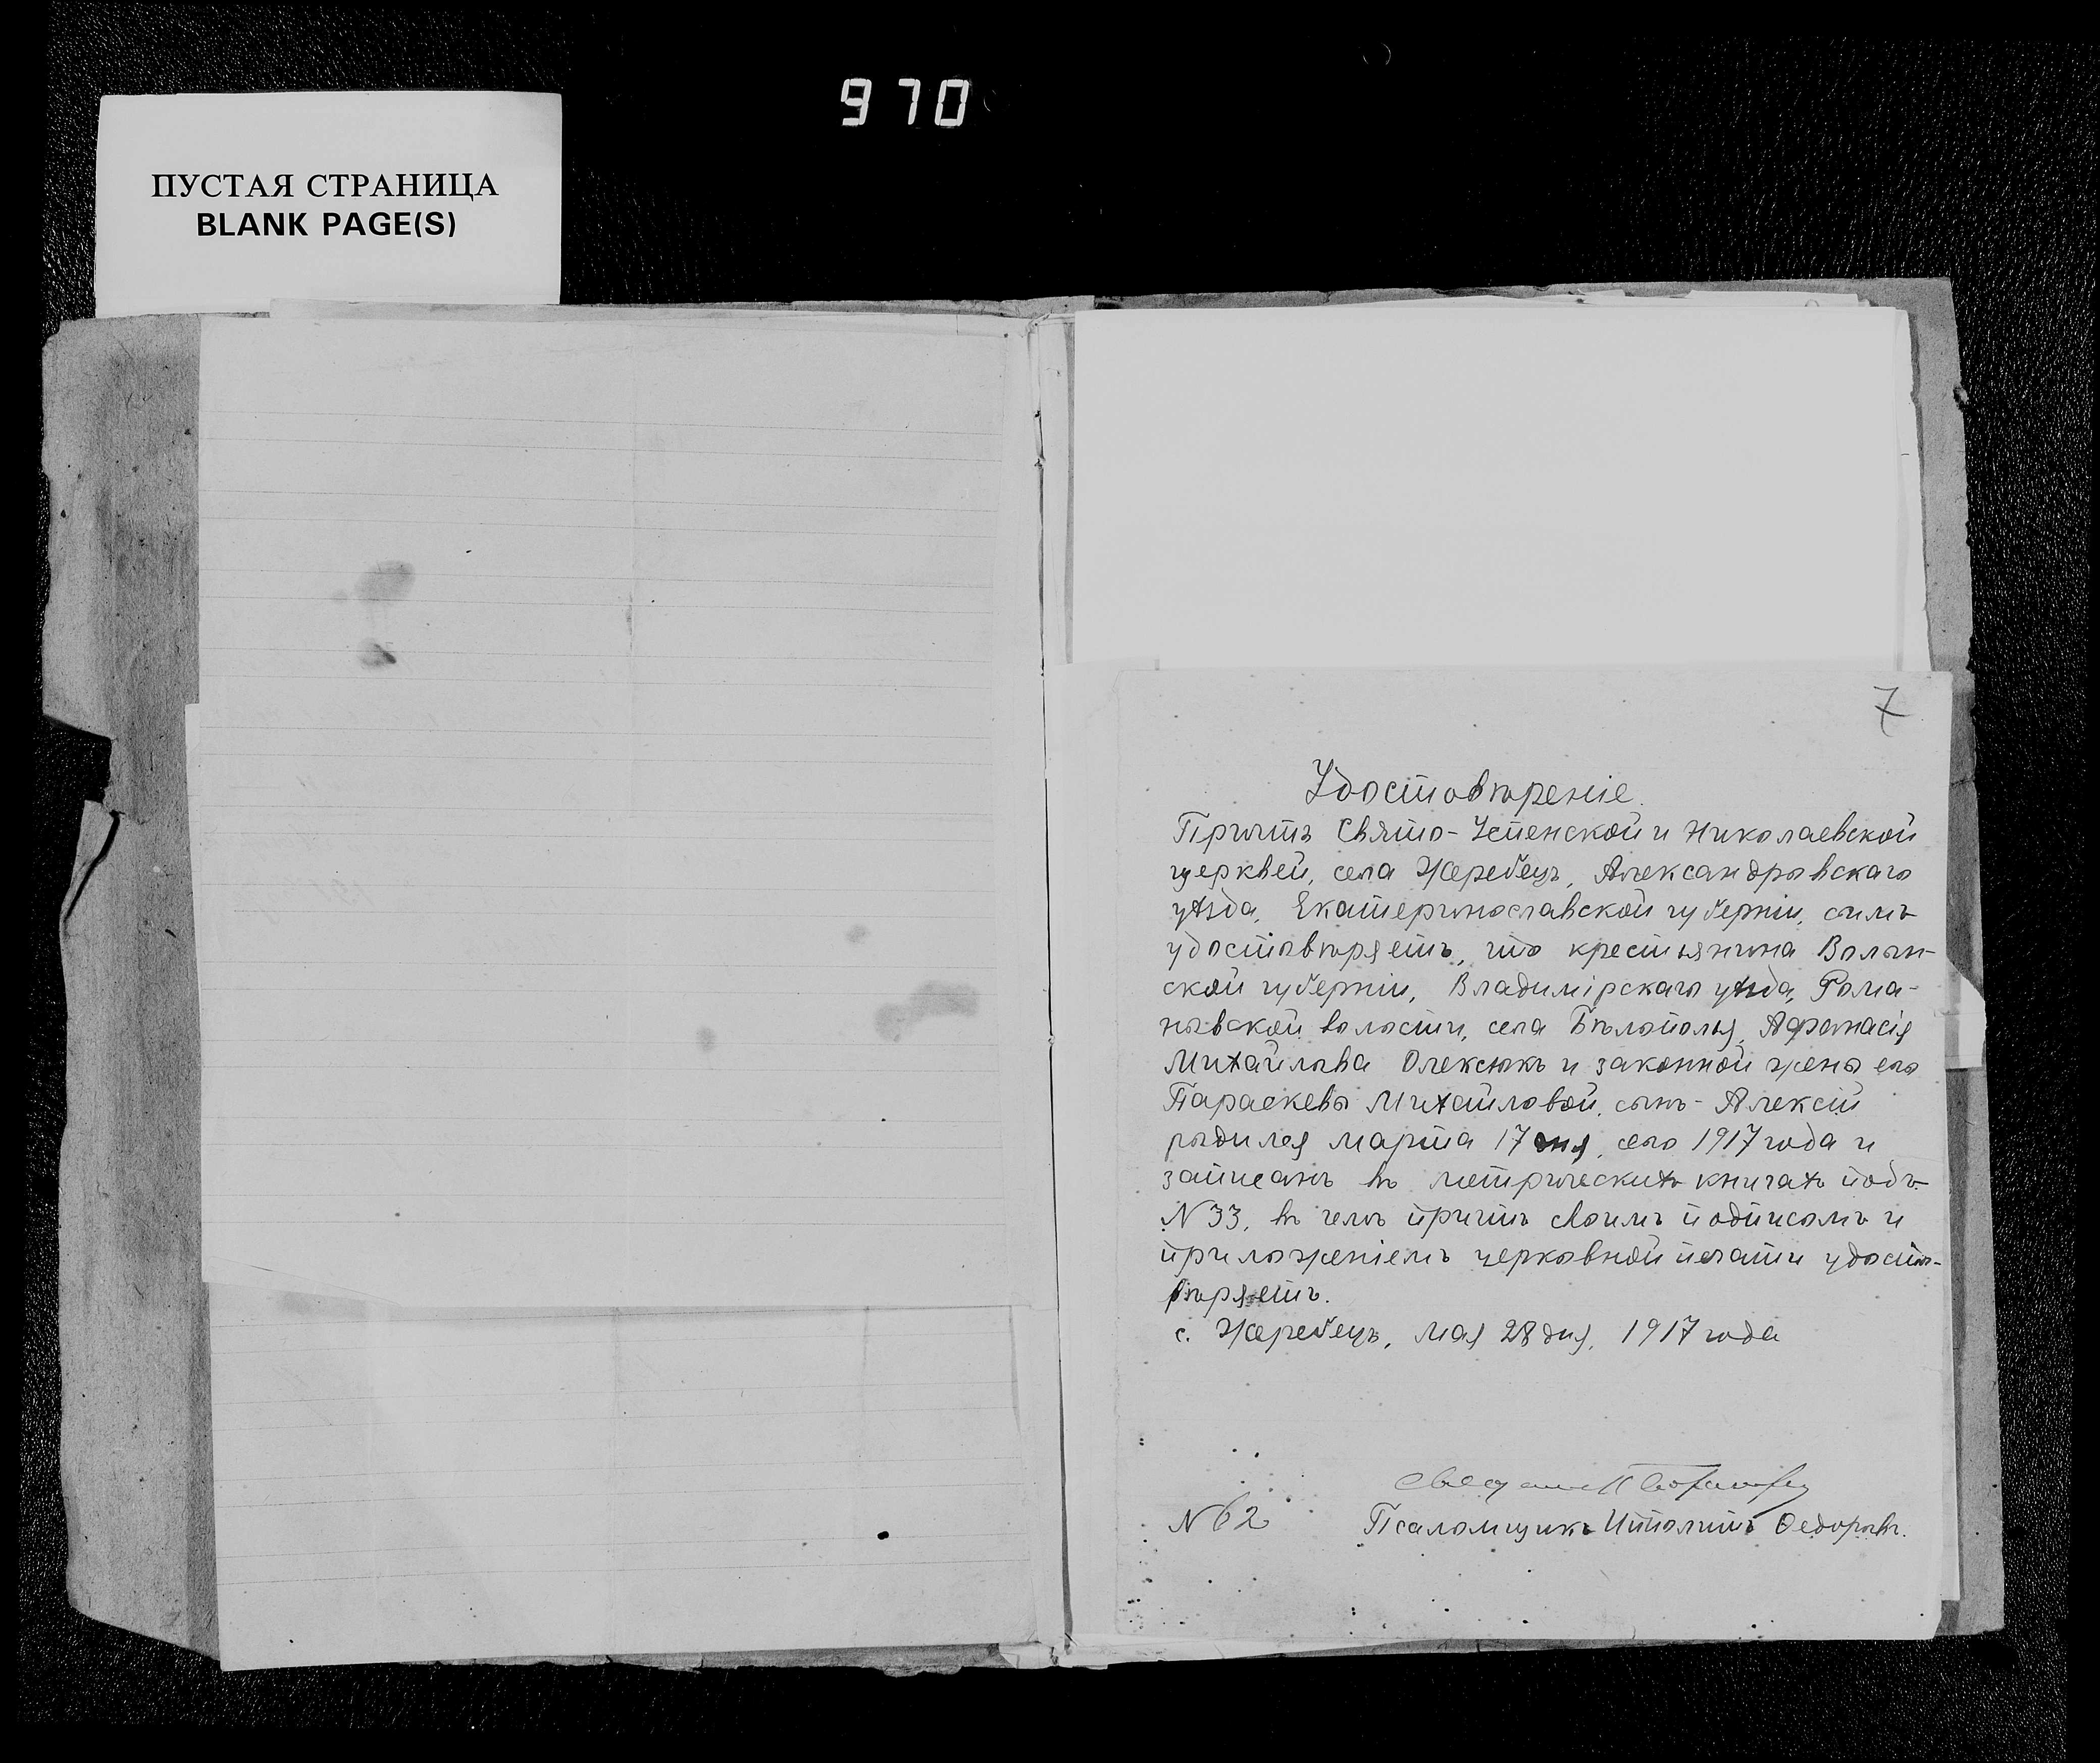 970
ПУСТАЯ СТРАНИЦА
BLANK PAGE(S)
7
Удостовѣреніе.
Причтъ Свято-Успенской и Николаевской
церквей, села Жеребецъ, Александровскаго
уѣзда, Екатеринославской губерніи, симъ
удостовѣряетъ, что крестьянина Волын-
ской губерніи, Владимірскаго уѣзда, Рома-
новской волости, села Бѣлополья, Афанасія
Михайлова Олексюкъ и законной жены его
Параскевы Михайловой, сынъ - Алексій
родился марта 17 дня, сего 1917 года и
записанъ въ метрическихъ книгахъ подъ
N 33, въ чемъ причтъ своимъ подписомъ и
приложеніемъ церковной печати удосто-
вѣряетъ.
с. Жеребецъ, мая 28 дня, 1917 года
N 62
Псаломщикъ Ипполитъ Ѳедоровъ.